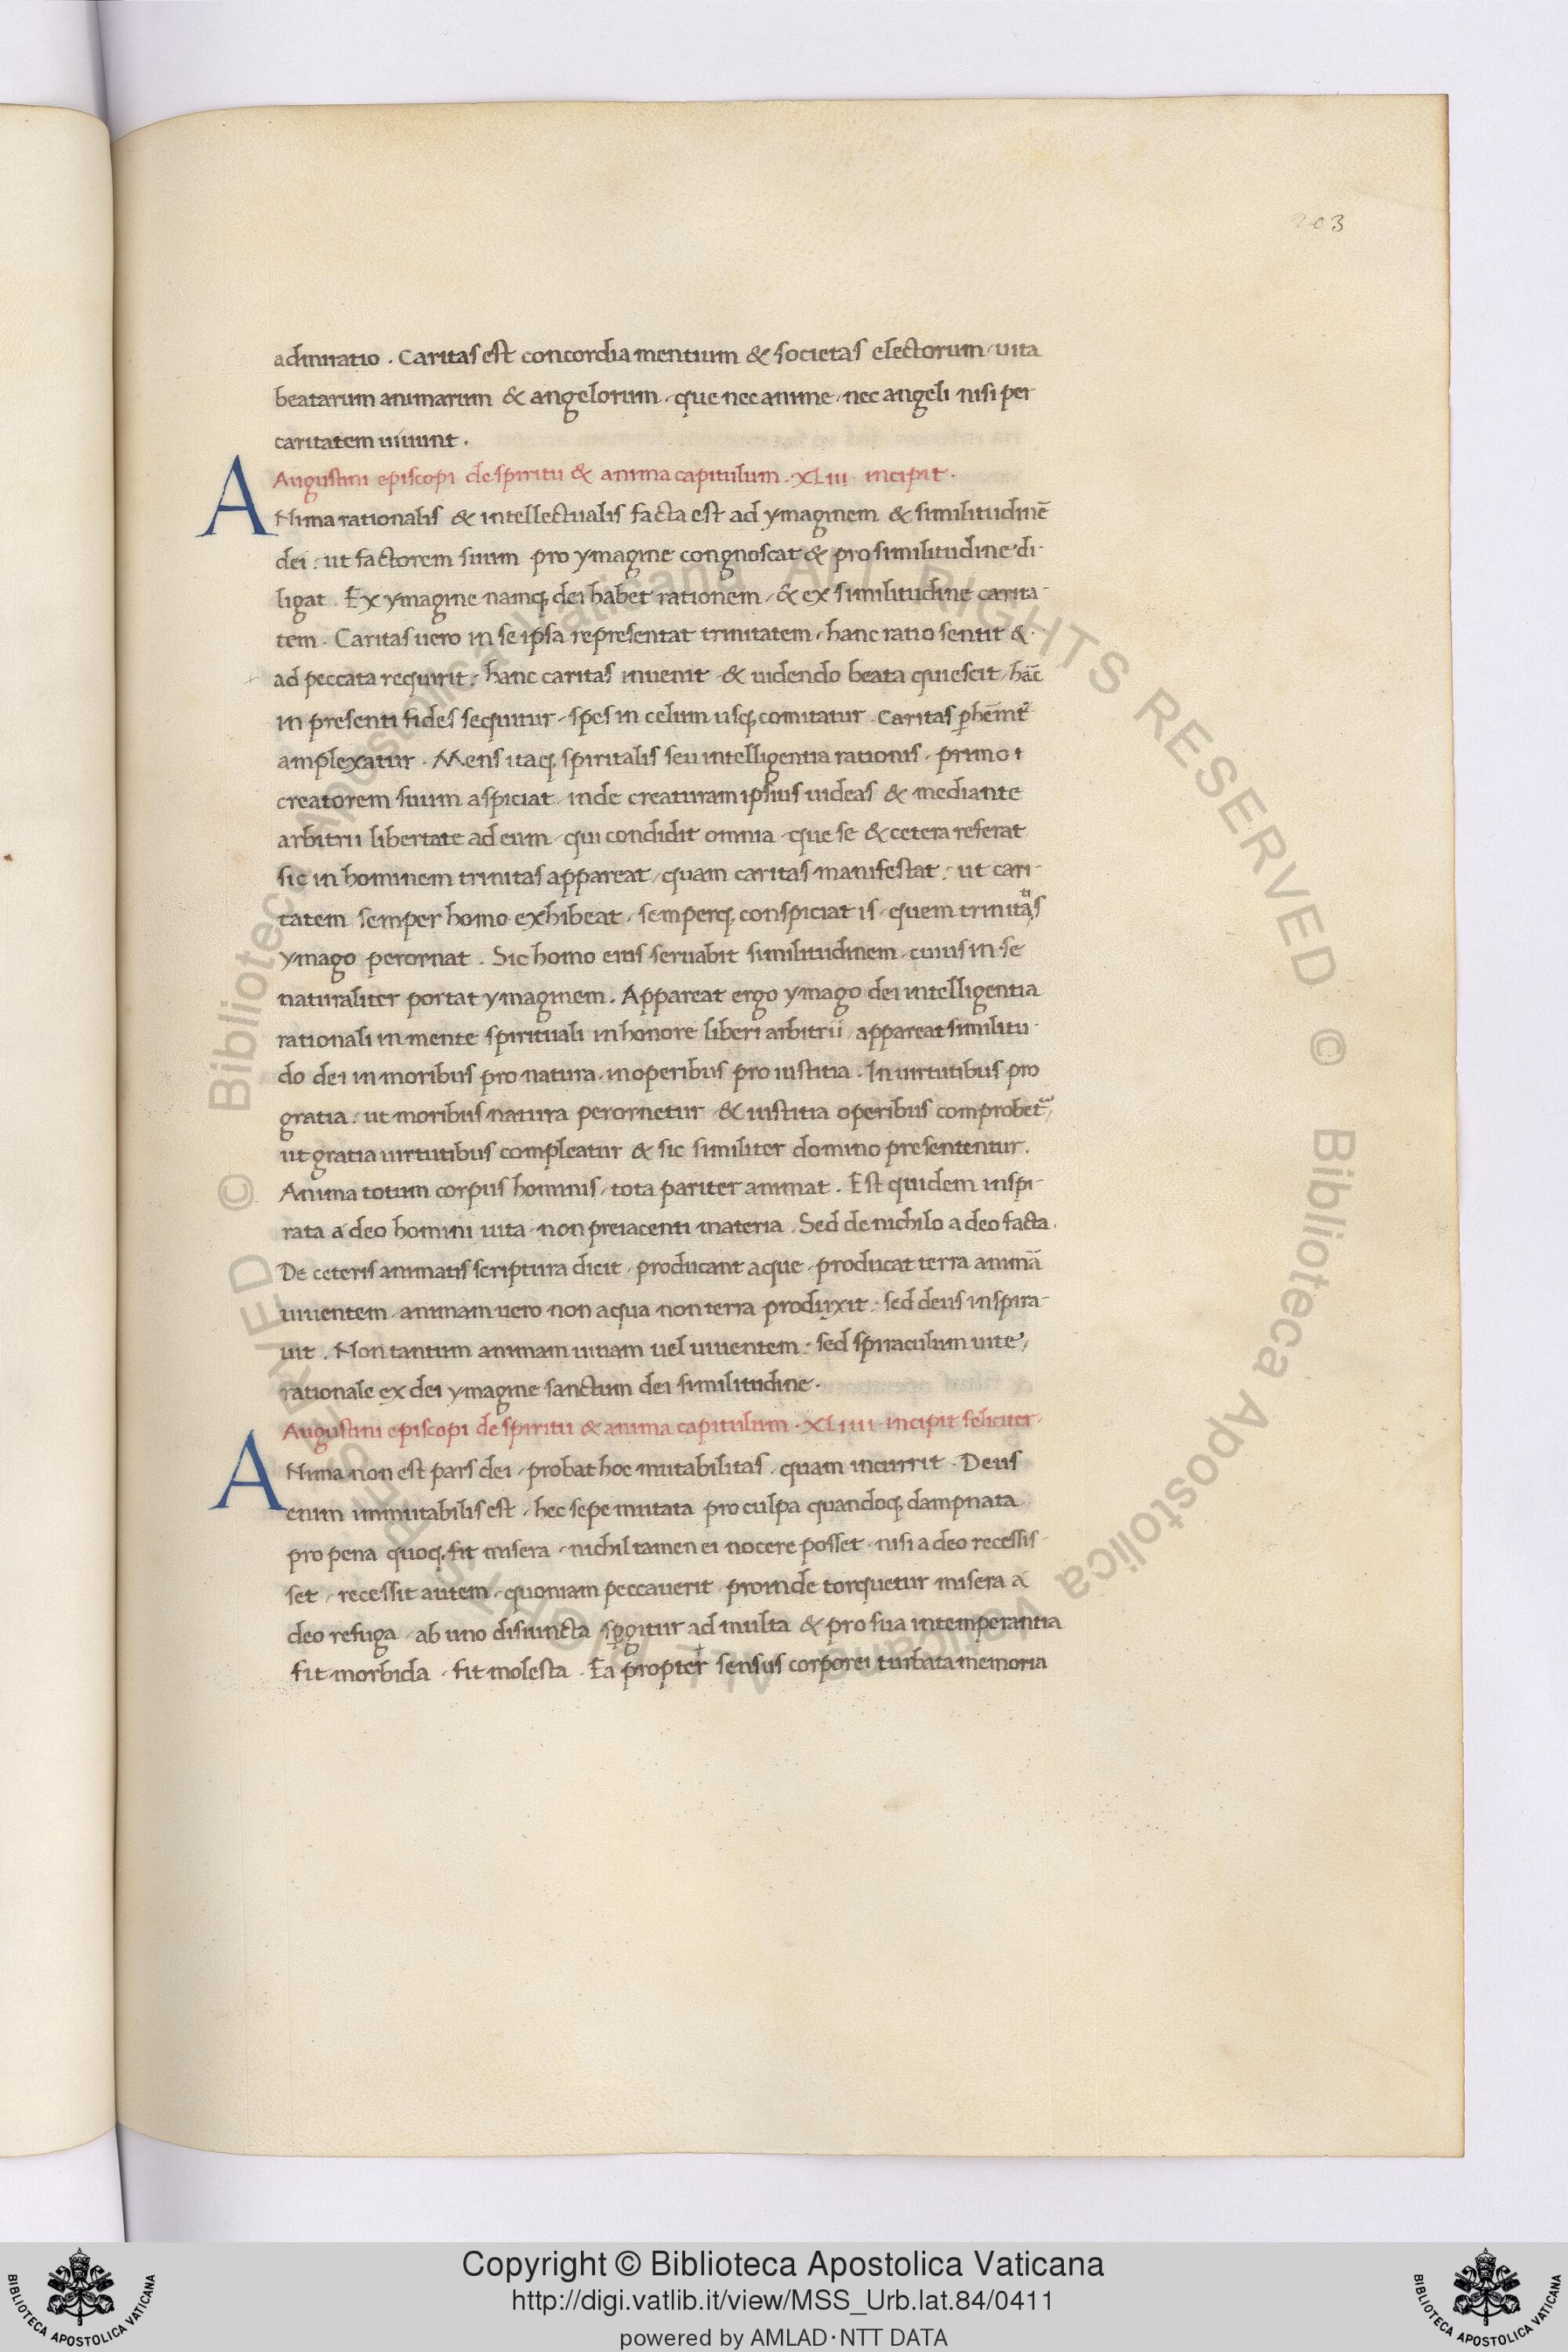 203
admiratio . Caritas est concordia mentium & societas electorum / uita
beatarum animarum & angelorum . que nec anime / nec angeli nisi per
caritatem uiuunt .
Augustini episcopi de spiritu & anima capitulum . XLiii incipit .
ANima rationalis & intellectualis facta est ad ymaginem & similitudinē
dei : ut factorem suum pro ymagine congnoscat & pro similitudine di-
ligat . Ex ymagine namq; dei habet rationem / & ex similitudine carita-
tem . Caritas uero in se ipsa representat trinitatem / hanc ratio sentit &
ad peccata requirit : hanc caritas inuenit & uidendo beata quiescit / hāc
in presenti fides sequitur / spes in celum usq; comitatur . Caritas
amplexatur . Mens itaq; spiritalis seu intelligentia rationis . primo
creatorem suum aspiciat . inde creaturam ipsius uideas & mediante
arbitrii libertate ad eum / qui condidit omnia / que se & cetera referat
sic in hominem trinitas appareat / quam caritas manifestat : ut cari-
tatem semper homo exhibeat / semperq; conspiciat is / quem
ymago perornat . Sic homo eius seruabit similitudinem / cuius in se
naturaliter portat ymaginem . Appareat ergo ymago dei intelligentia
rationali in mente spirituali in honore liberi arbitrii / appareat similitu-
do dei in moribus pro natura . in operibus pro iustitia . In uirtutibus pro
gratia : ut moribus natura perornetur & iustitia operibus comprobet᷑ /
ut gratia uirtutibus compleatur & sic similiter domino presententur .
Anima totum corpus hominis / tota pariter animat . Est quidem inspi-
rata a deo homini uita / non preiacenti materia . Sed de nichilo a deo facta .
De ceteris animatis scriptura dicit / producant aque / producat terra animā
uiuentem / animam uero non aqua non terra produxit : sed deus inspira-
uit . Non tantum animam uiuam uel uiuentem : sed spiraculum uite /
rationale ex dei ymagine sanctum dei similitudine .
Augustini episcopi de spiritu & anima capitulum . XLiiii . incipit feliciter .
ANima non est pars dei / probat hoc mutabilitas . quam incurrit . Deus
enim immutabilis est / hec sepe mutata pro culpa quandoq; dampnata
pro pena quoq; fit misera / nichil tamen ei nocere posset / nisi a deo recessis-
set / recessit autem / quoniam peccauerit / proinde torquetur misera a
deo refuga / ab uno disiuncta sꝑgitur ad multa & pro sua intemperantia
fit morbida . fit molesta . Ea propter sensus corporei turbata memoria
© Biblioteca Apostolica Vaticana ALL RIGHTS RESERVED © Biblioteca Apostolica Vaticana ALL RIGHTS RESERVED
BIBLIOTECA APOSTOLICA VATICANA
Copyright © Biblioteca Apostolica Vaticana
http://digi.vatlib.it/view/MSS_Urb.lat.84/0411
powered by AMLAD·NTT DATA
BIBLIOTECA APOSTOLICA VATICANA